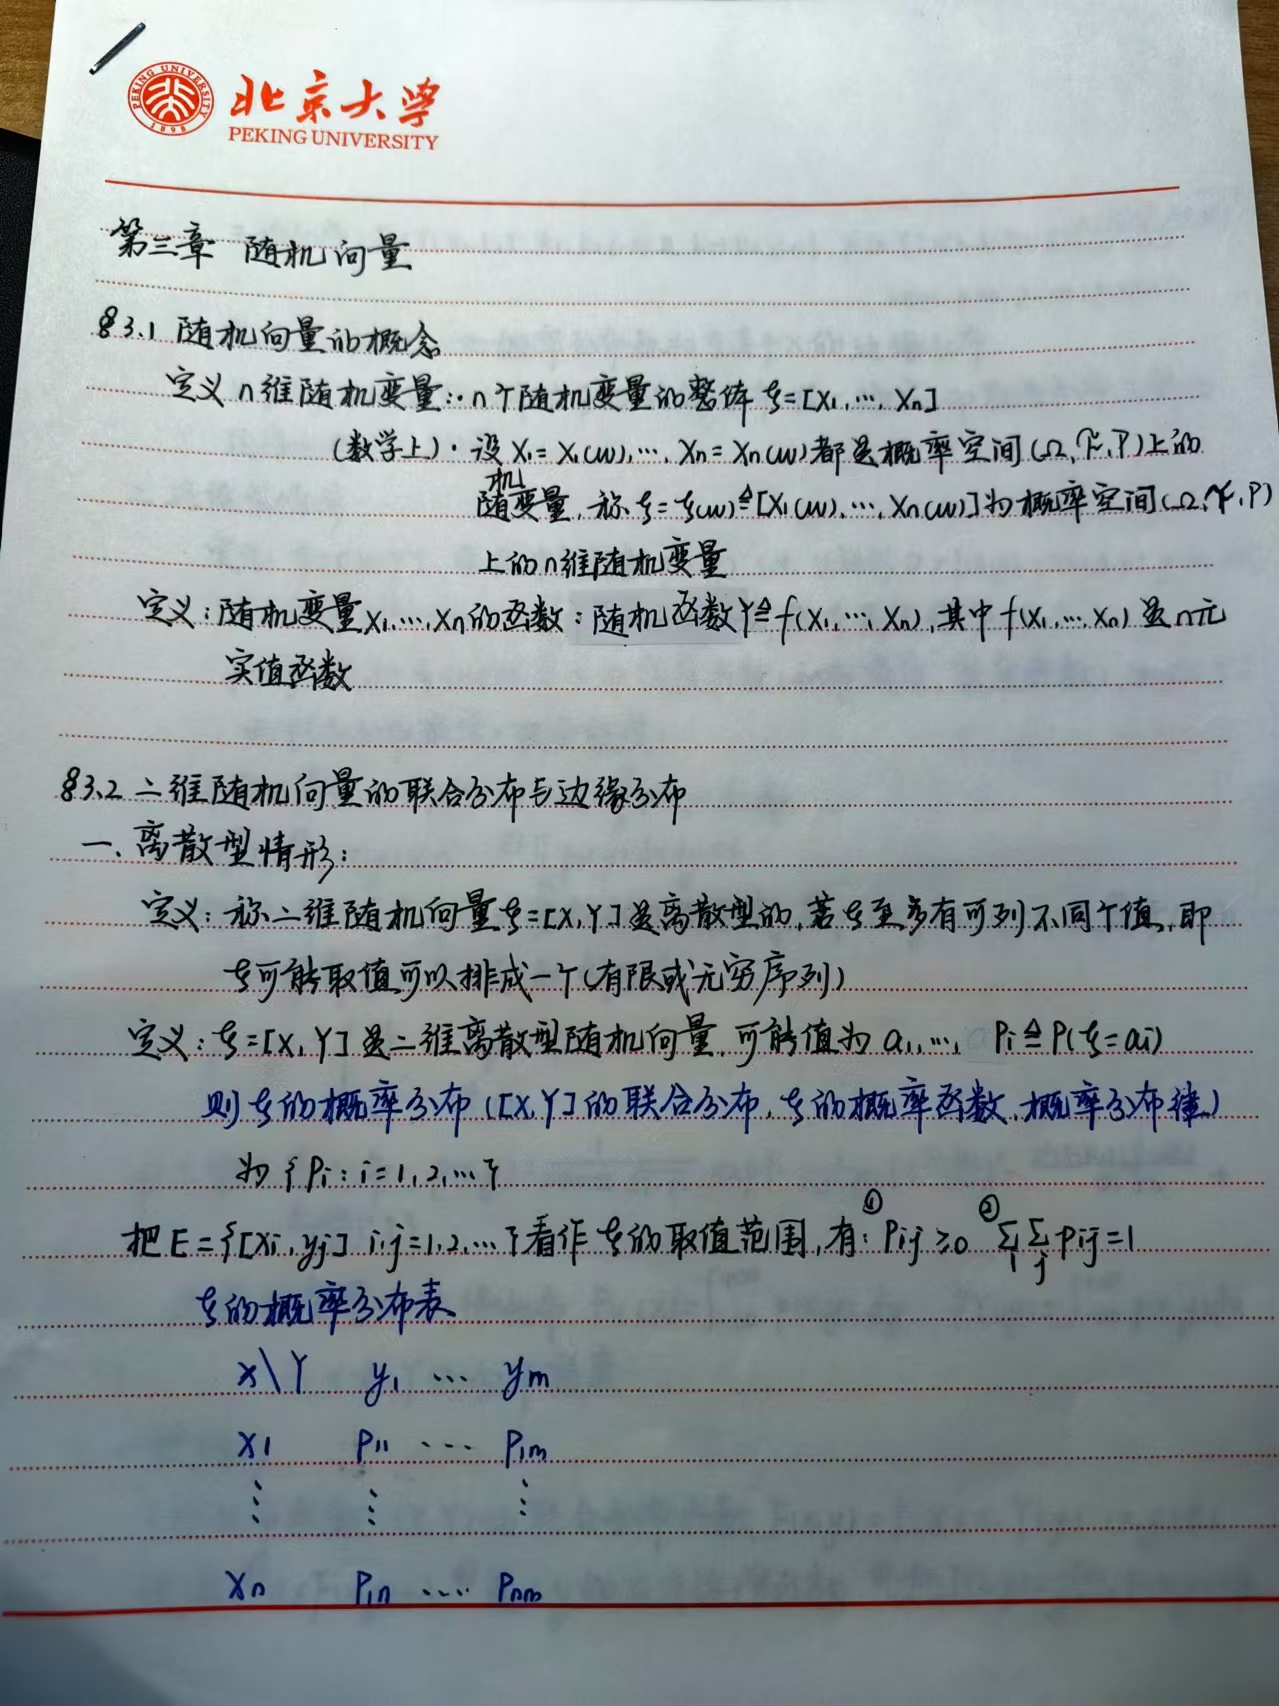 PEKING UNIVERSITY
1898
北京大学
PEKING UNIVERSITY
第三章 随机向量
§3.1 随机向量的概念
定义 n维随机变量:·n个随机变量的整体 ξ=[X₁,…,Xn]
(数学上)·设 X₁=X₁(ω),…,Xn=Xn(ω)都是概率空间(Ω,ℱ,P)上的
随机变量,称ξ=ξ(ω)≜[X₁(ω),…,Xn(ω)]为概率空间(Ω,ℱ,P)
上的n维随机变量
定义:随机变量X₁,…,Xn的函数:随机函数Y≜f(X₁,…,Xn),其中f(X₁,…,Xn)是n元
实值函数
§3.2 二维随机向量的联合分布与边缘分布
一、离散型情形:
定义:称二维随机向量ξ=[X,Y]是离散型的,若ξ至多有可列不同个值,即
ξ可能取值可以排成一个(有限或无穷序列)
定义:ξ=[X,Y]是二维离散型随机向量,可能值为a₁,…, Pi≜P(ξ=ai)
则ξ的概率分布([X,Y]的联合分布,ξ的概率函数,概率分布律)
为{Pi:i=1,2,…}
把E={[Xi,yj] i,j=1,2,…}看作ξ的取值范围,有:①Pij≥0 ②∑i∑j pij=1
ξ的概率分布表
X\Y y₁ … ym
X1 P11 … P1m
⋮ ⋮ ⋮
Xn P1n …. Pnm